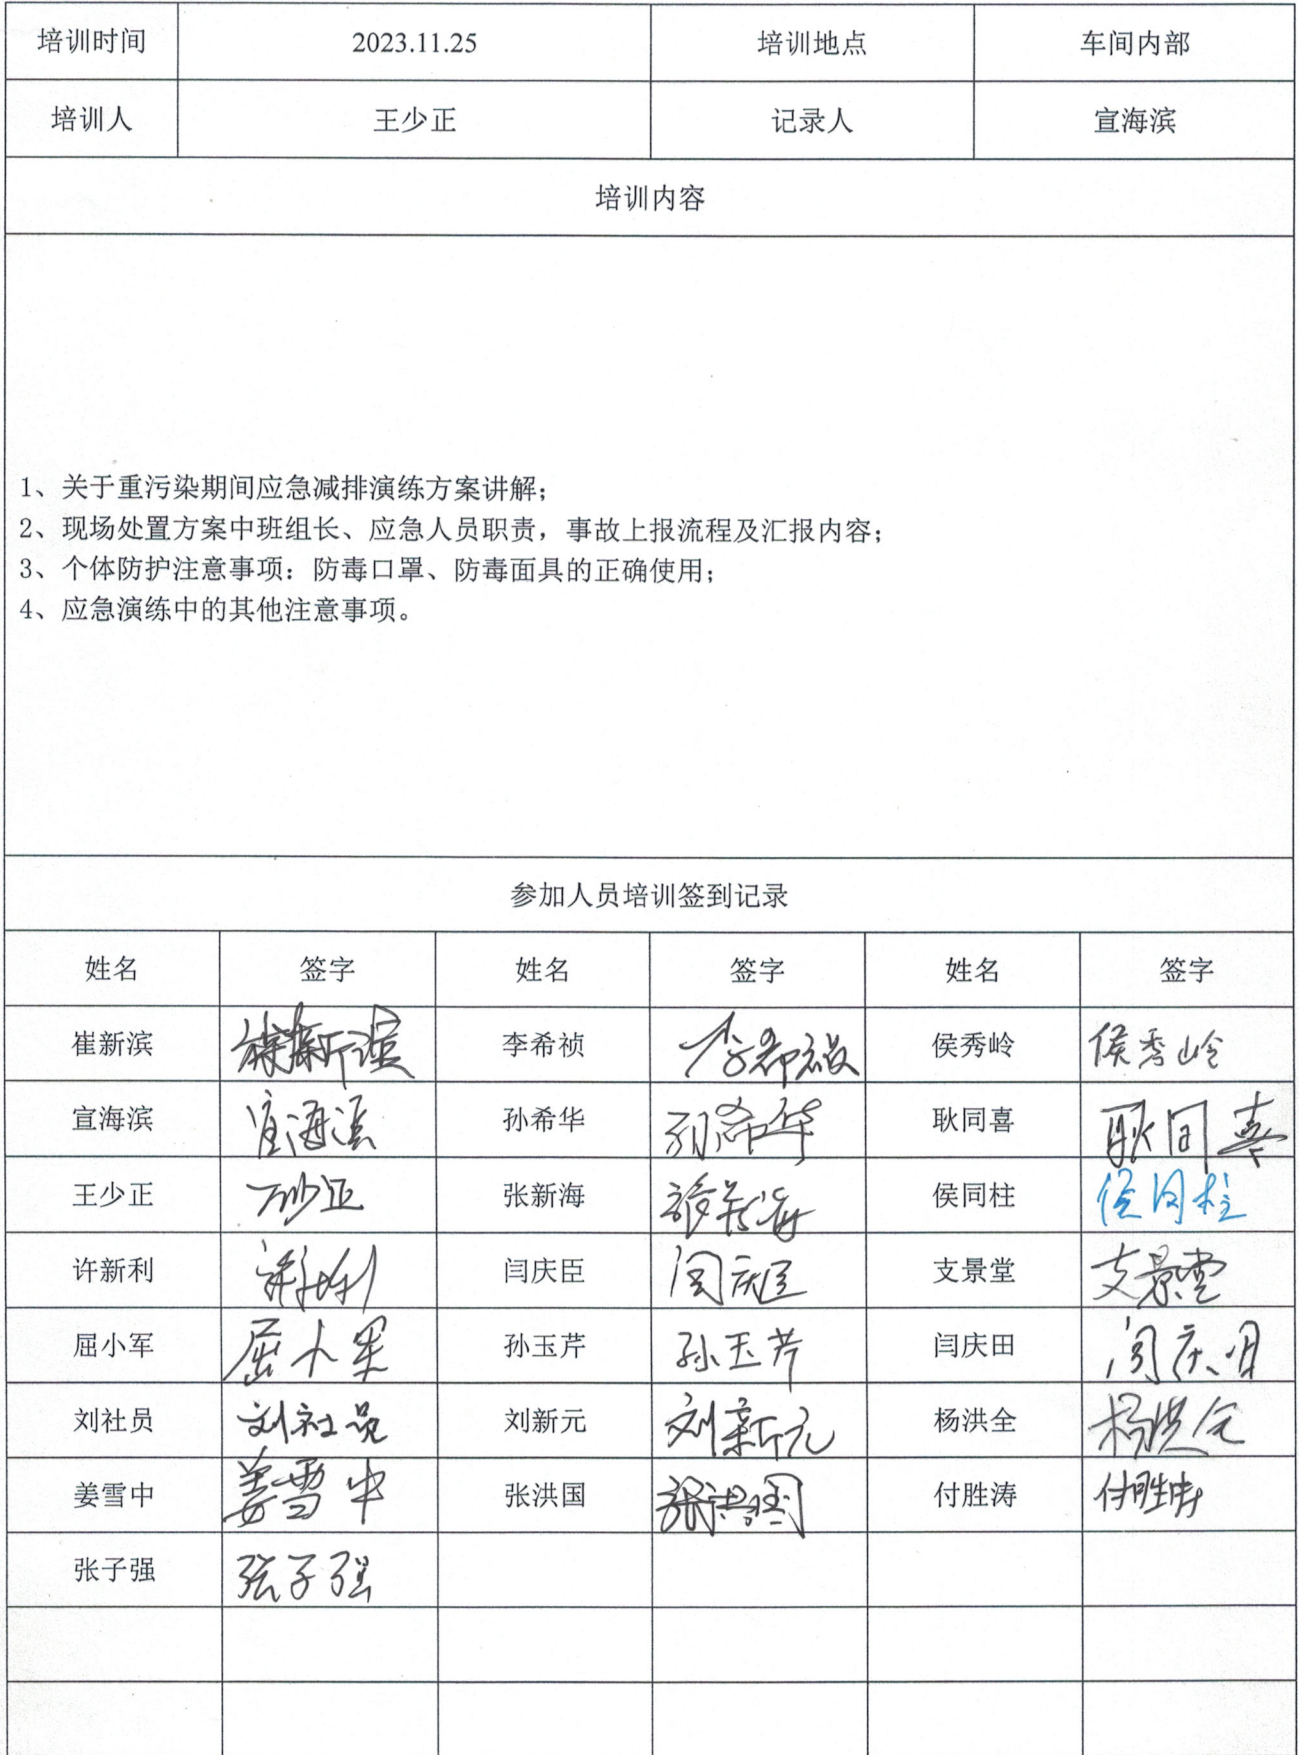 培训时间 2023.11.25 培训地点 车间内部
培训人 王少正 记录人 宣海滨
培训内容
1、关于重污染期间应急减排演练方案讲解；
2、现场处置方案中班组长、应急人员职责，事故上报流程及汇报内容；
3、个体防护注意事项：防毒口罩、防毒面具的正确使用；
4、应急演练中的其他注意事项。
参加人员培训签到记录
姓名 签字 姓名 签字 姓名 签字
崔新滨 李希祯 侯秀岭 侯秀岭
宣海滨 宣海滨 孙希华 孙希华 耿同喜 耿同喜
王少正 王少正 张新海 张新海 侯同柱 侯同柱
许新利 许新利 闫庆臣 闫庆臣 支景堂 支景堂
屈小军 屈小军 孙玉芹 孙玉芹 闫庆田 闫庆田
刘社员 刘社员 刘新元 刘新元 杨洪全 杨洪全
姜雪中 姜雪中 张洪国 张洪国 付胜涛 付胜涛
张子强 张子强